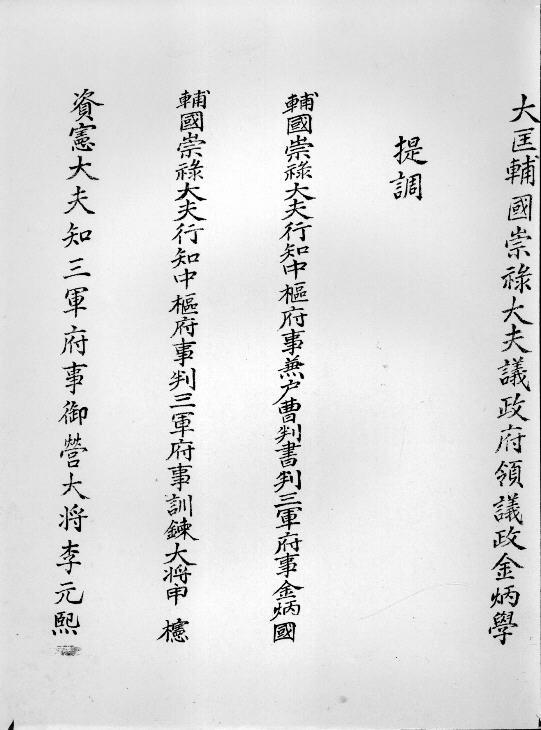 大匡輔國崇祿大夫議政府領議政金炳學
提調
輔國崇祿大夫行知中樞府事兼户曹判書判三軍府事金炳國
輔國崇祿大夫行知中樞府事判三軍府事訓鍊大將申櫶
資憲大夫知三軍府事御營大将李元熙